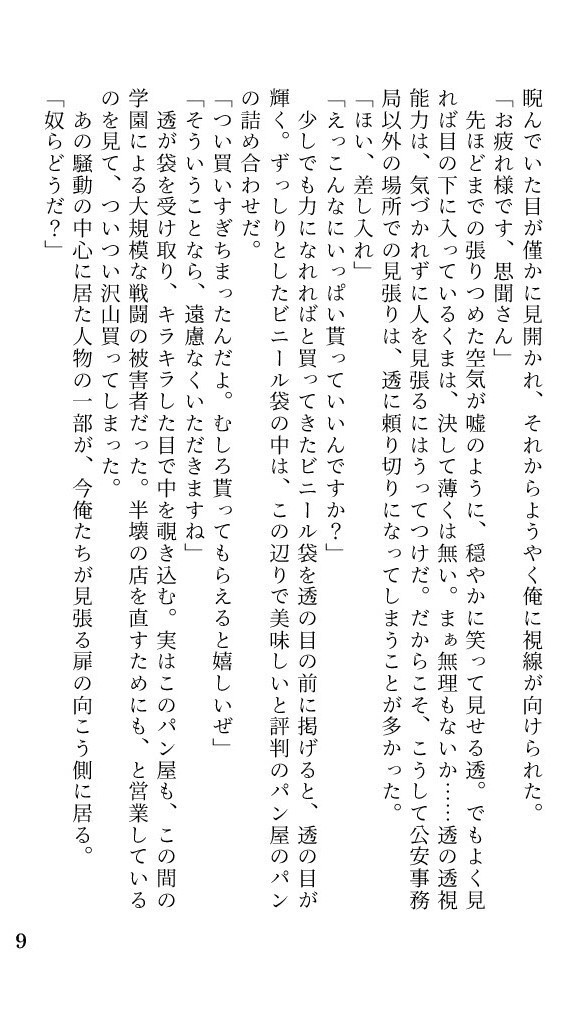 睨んでいた目が僅かに見開かれ、それからようやく俺に視線が向けられた。
「お疲れ様です、思聞さん」
先ほどまでの張りつめた空気が嘘のように、穏やかに笑って見せる透。でもよく見
れば目の下に入っているくまは、決して薄くは無い。まぁ無理もないか……透の透視
能力は、気づかれずに人を見張るにはうってつけだ。だからこそ、こうして公安事務
局以外の場所での見張りは、透に頼り切りになってしまうことが多かった。
「ほい、差し入れ」
「えっこんなにいっぱい貰っていいんですか？」
少しでも力になれればと買ってきたビニール袋を透の目の前に掲げると、透の目が
輝く。ずっしりとしたビニール袋の中は、この辺りで美味しいと評判のパン屋のパン
の詰め合わせだ。
「つい買いすぎちまったんだよ。むしろ貰ってもらえると嬉しいぜ」
「そういうことなら、遠慮なくいただきますね」
透が袋を受け取り、キラキラした目で中を覗き込む。実はこのパン屋も、この間の
学園による大規模な戦闘の被害者だった。半壊の店を直すためにも、と営業している
のを見て、ついつい沢山買ってしまった。
あの騒動の中心に居た人物の一部が、今俺たちが見張る扉の向こう側に居る。
「奴らどうだ？」
9